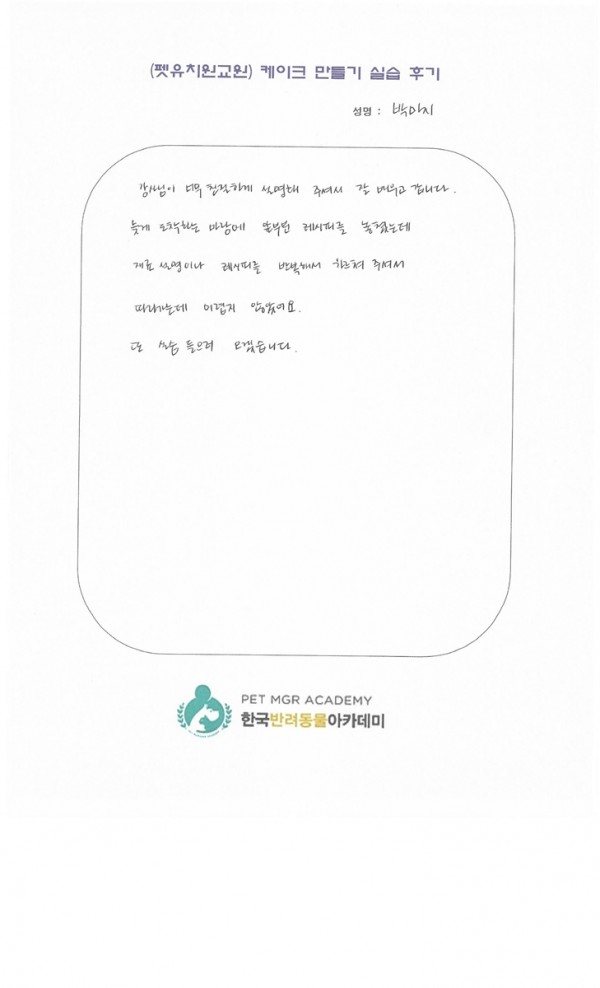 (펫유치원교원) 케이크 만들기 실습 후기
성명 : 박마지
강사님이 너무 친절하게 설명해 주셔서 잘 배우고 갑니다.
늦게 도착하는 바람에 앞부분 레시피를 놓쳤는데
재료 설명이나 레시피를 반복해서 가르쳐 주셔서
따라가는데 어렵지 않았어요.
또 실습 들으러 오겠습니다.
PET MGR ACADEMY
한국반려동물아카데미